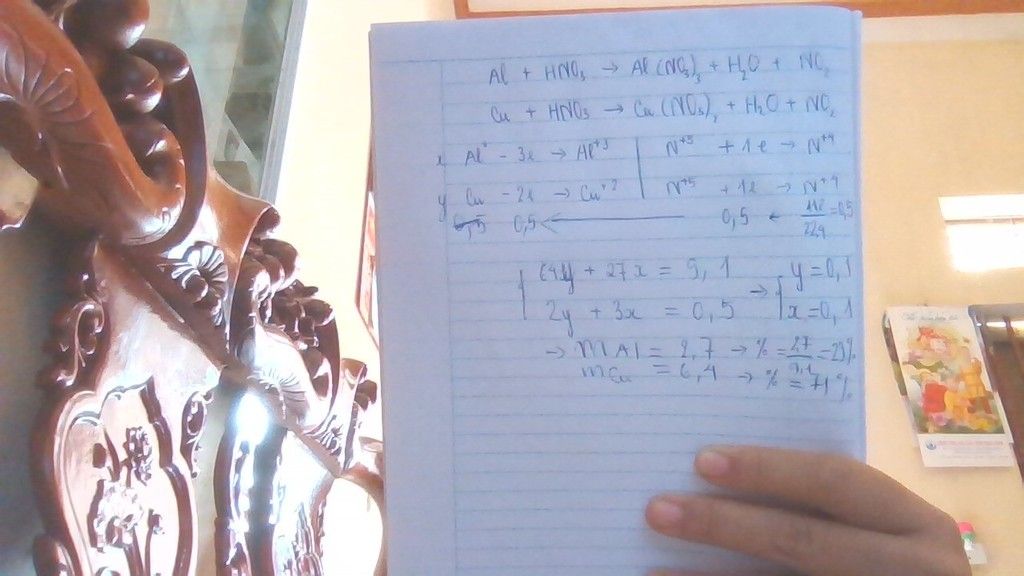 Al + HNO₃ → Al(NO₃)₃ + H₂O + NO₂
Cu + HNO₃ → Cu(NO₃)₂ + H₂O + NO₂
x Al - 3e → Al⁺³ | N⁺⁵ + 1e → N⁺⁴
y Cu - 2e → Cu⁺² | N⁺⁵ + 1e → N⁺⁴
0,5 ← 0,5 ← /22,4 = 0,5
64y + 27x = 9,1 → y = 0,1
2y + 3x = 0,5 x = 0,1
→ mAl = 2,7 → % = 2,7/9,1 = 29%
mCu = 6,4 → % = 71%